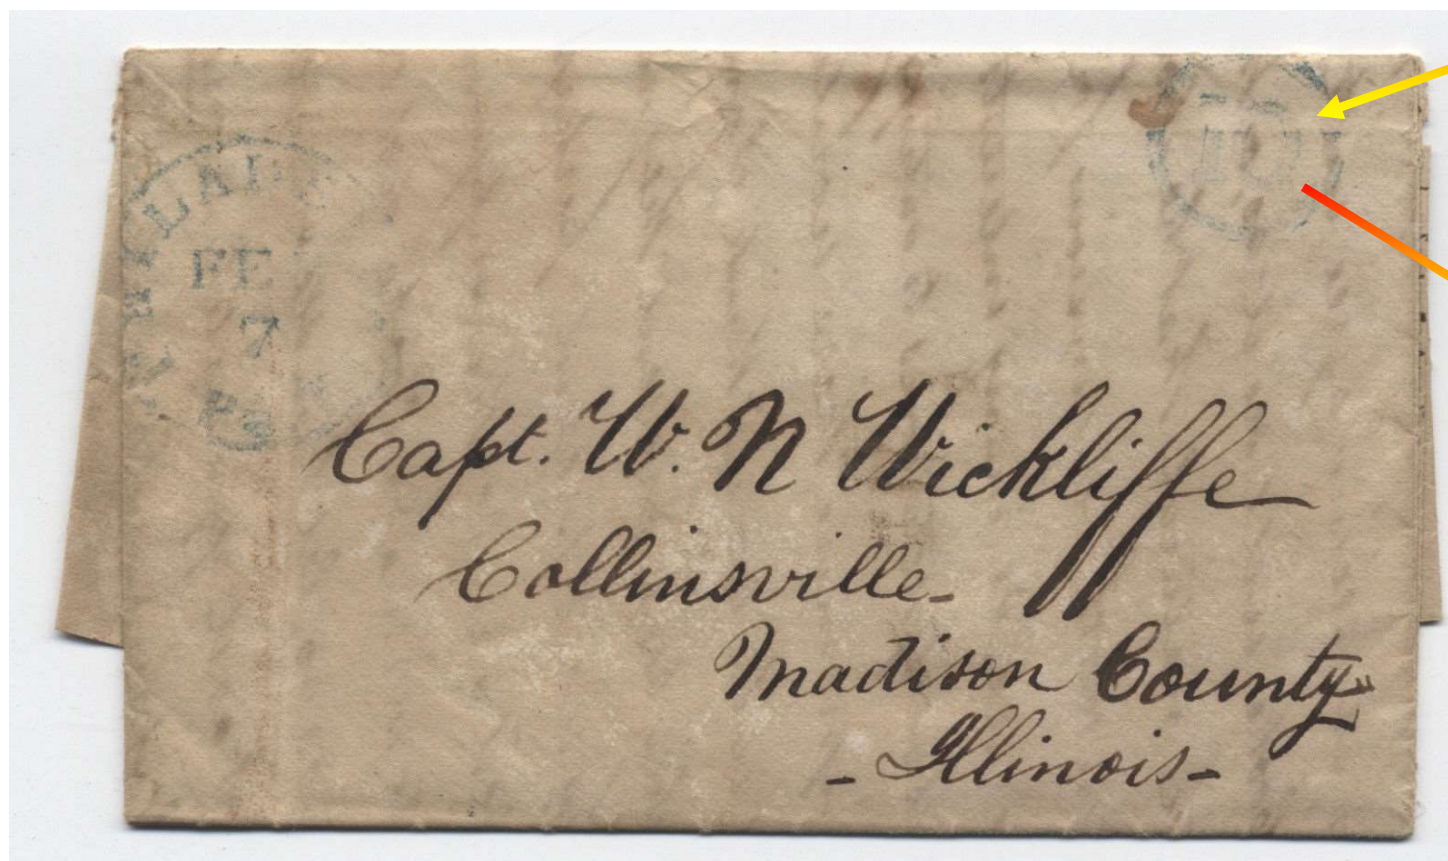 10
FE
7
Capt. W. N Wickliffe
Collinsville-
Madison County
- Illinois-